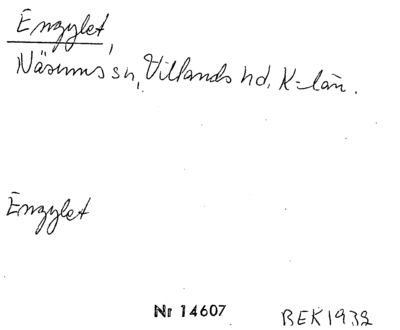 Enzylet,
Näsums sn, Villands hd, K-län.
Enzylet
Nr 14607 BEK1932